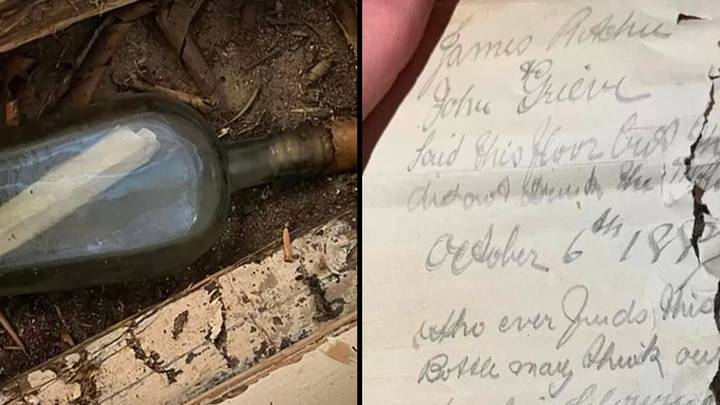 James Ritchie
&
John Grieve
laid this floor but
did not drink the
October 6th 188
who ever finds this
Bottle may think our